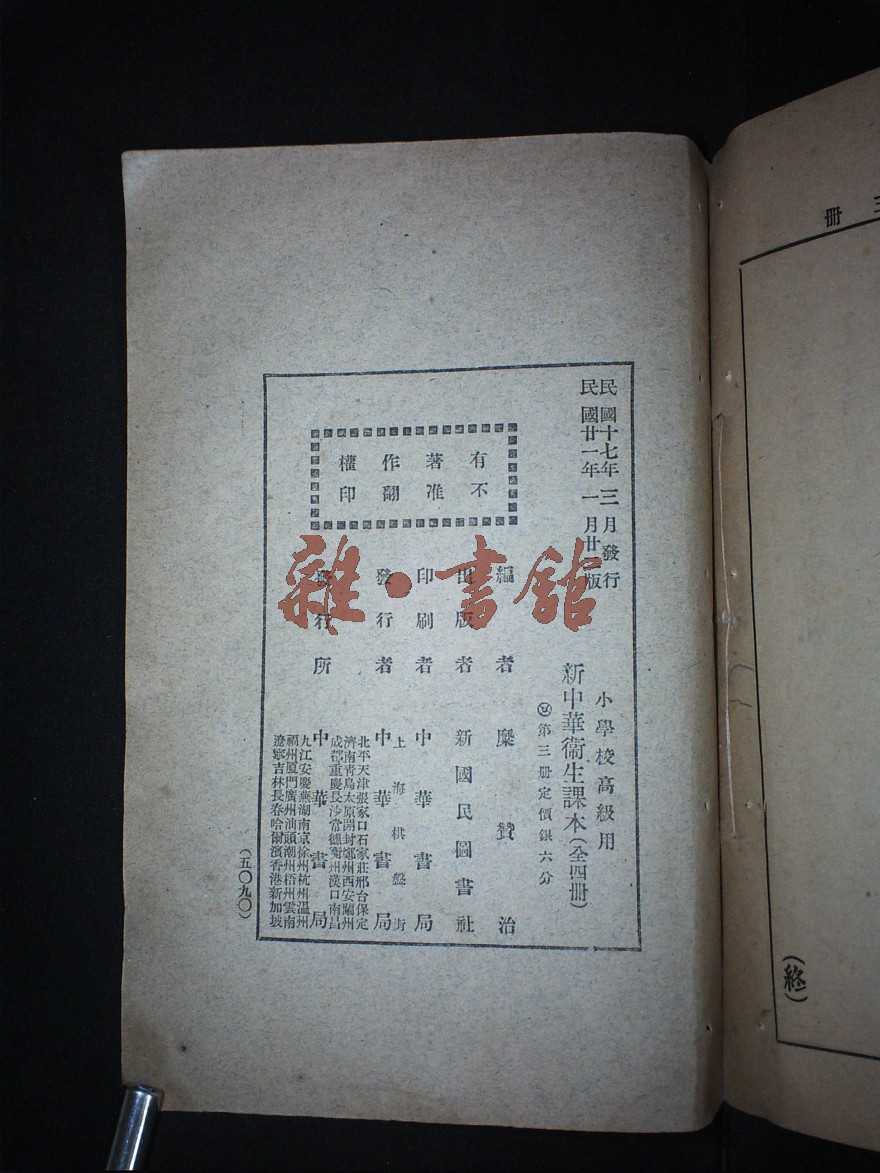 三冊
(終)
民國十七年三月發行
民國廿一年一月廿版
小學校高級用
新中華衞生課本(全四冊)
第三冊定價銀六分
有不
著准
作翻
權印
編者 糜贊治
出版者 新國民圖書社
印刷者 中華書局
上海棋盤街
發行者 中華書局
北平天津張家口石家莊邢台保定
濟南青島太原開封鄭州西安蘭州
成都重慶長沙常德衡州漢口南昌
發行所 中華書局
九江安慶蕪湖南京徐州杭州溫州
福州厦門廣州汕頭潮州梧州雲南
遼寧吉林長春哈爾濱香港新加坡
(五〇九〇)
雜·書館